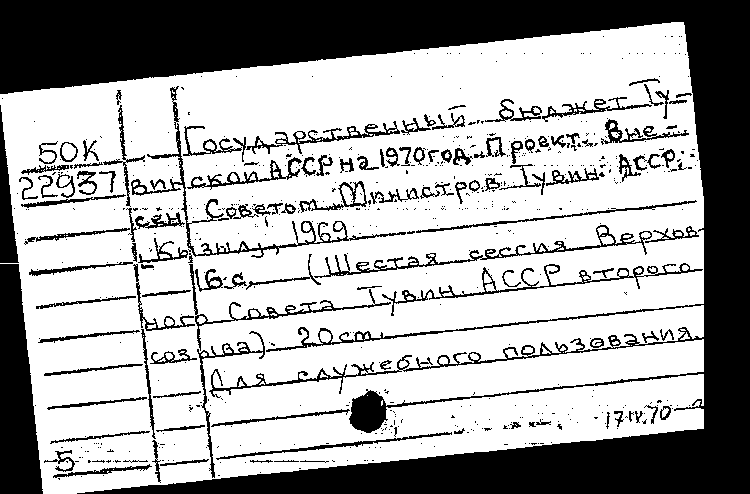 Государственный бюджет Ту-
50К
22937
винской АССР на 1970 год. Проект. Вне-
сен Советом Министров Тувин. АССР.
[Кызыл], 1969.
16 с. (Шестая сессия Верхов-
ного Совета Тувин. АССР второго
созыва). 20 cm.
Для служебного пользования.
17 IV.70
5